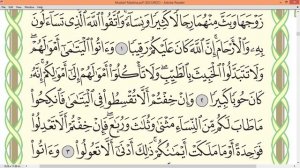 Mushaf Madina.pdf (SECURED) - Adobe Reader
زَوْجَهَا وَبَثَّ مِنْهُمَا رِجَالًا كَثِيرًا وَنِسَآءً ۚ وَٱتَّقُوا۟ ٱللَّهَ ٱلَّذِى تَسَآءَلُونَ
بِهِۦ وَٱلْأَرْحَامَ ۚ إِنَّ ٱللَّهَ كَانَ عَلَيْكُمْ رَقِيبًا ١ وَءَاتُوا۟ ٱلْيَتَـٰمَىٰٓ أَمْوَٰلَهُمْ ۖ
وَلَا تَتَبَدَّلُوا۟ ٱلْخَبِيثَ بِٱلطَّيِّبِ ۖ وَلَا تَأْكُلُوٓا۟ أَمْوَٰلَهُمْ إِلَىٰٓ أَمْوَٰلِكُمْ ۚ إِنَّهُۥ
كَانَ حُوبًا كَبِيرًا ٢ وَإِنْ خِفْتُمْ أَلَّا تُقْسِطُوا۟ فِى ٱلْيَتَـٰمَىٰ فَٱنكِحُوا۟
مَا طَابَ لَكُم مِّنَ ٱلنِّسَآءِ مَثْنَىٰ وَثُلَـٰثَ وَرُبَـٰعَ ۖ فَإِنْ خِفْتُمْ أَلَّا تَعْدِلُوا۟
فَوَٰحِدَةً أَوْ مَا مَلَكَتْ أَيْمَـٰنُكُمْ ۚ ذَٰلِكَ أَدْنَىٰٓ أَلَّا تَعُولُوا۟ ٣ وَءَاتُوا۟